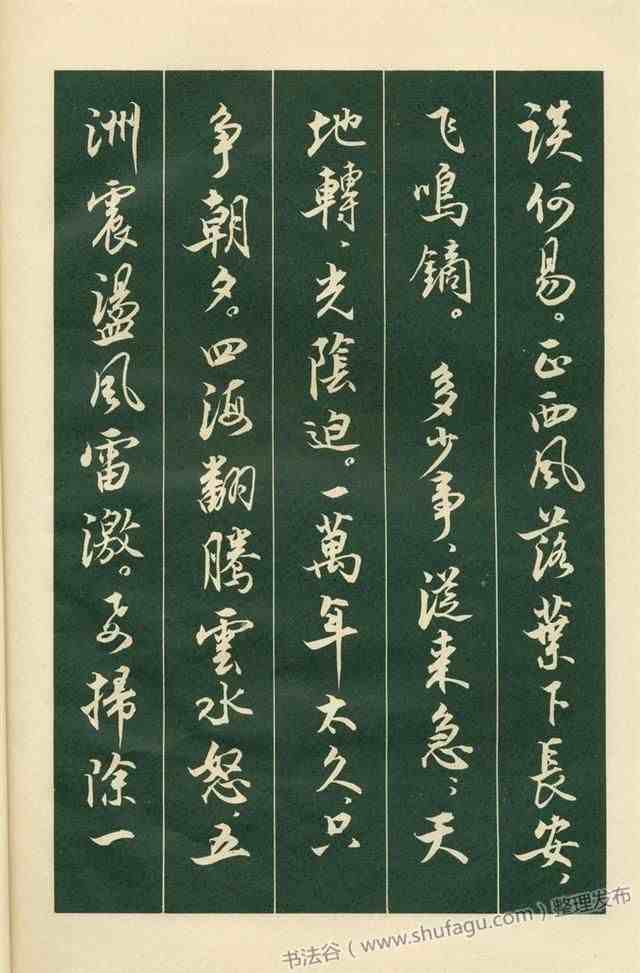 談何易。正西風落葉下長安、
飞鳴鏑。 多少事、從来急；天
地轉、光陰迫。一萬年太久、只
争朝夕。四海翻騰雲水怒、五
洲震盪風雷激。要掃除一
书法谷（www.shufagu.com）整理发布